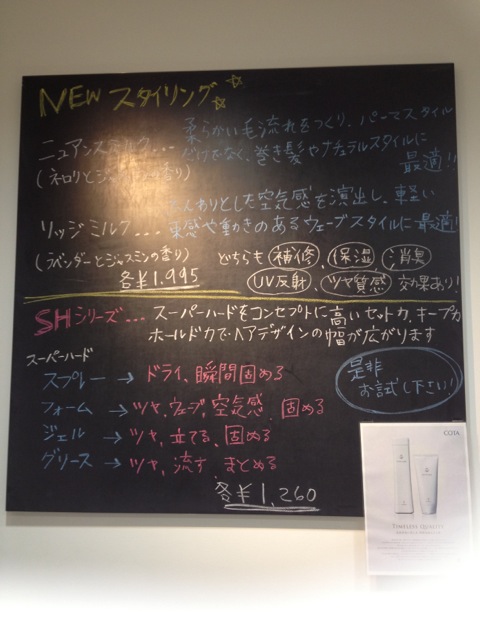 NEW スタイリング☆☆
ニュアンスミルク... 柔らかい毛流れをつくり、パーマスタイル
だけでなく、巻き髪やナチュラルスタイルに
最適!!
(ネロリと の香り)
ふんわりとした空気感を演出し、軽い
リッジミルク... 束感や動きのあるウェーブスタイルに最適!
(ラベンダーとジャスミンの香り)
どちらも 補修、保湿、消臭
各¥1,995
UV反射、ツヤ質感 効果あり!
SHシリーズ... スーパーハードをコンセプトに高いセット力、キープ力
ホールド力でヘアデザインの幅が広がります
スーパーハード
スプレー → ドライ、瞬間固める
フォーム → ツヤ、ウェーブ、空気感、固める
ジェル → ツヤ、立てる、固める
グリース → ツヤ、流す、まとめる
各¥1,260
是非
お試し下さい!
COTA
TIMELESS QUALITY